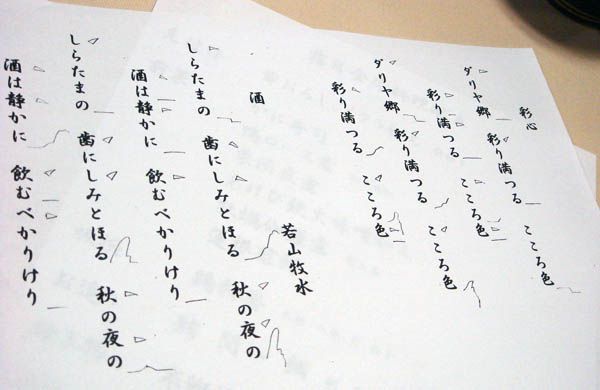 彩心
ダリヤ郷 彩り満つる こころ色
彩り満つる こころ色
ダリヤ郷 彩り満つる こころ色
彩り満つる こころ色
酒 若山牧水
しらたまの 歯にしみとほる 秋の夜の
酒は静かに 飲むべかりけり
しらたまの 歯にしみとほる 秋の夜の
酒は静かに 飲むべかりけり